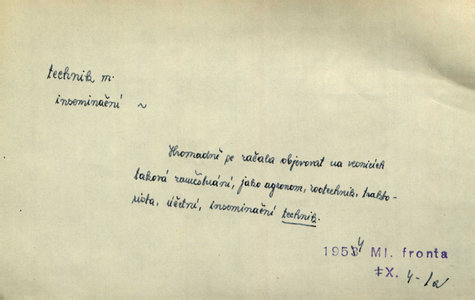 technik m.
inseminační ~
Hromadně se začala objevovat na vesnicích
taková zaměstnání, jako agronom, zootechnik, trakto-
rista, účetní, inseminační technik.
1954 Ml. fronta
X. 4-1a